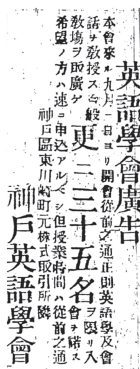 英語學會廣告
本會來ル九月一日ヨリ開會從前之通正則英語學及會
話ヲ敎授ス今般更ニ三十五名ヲ限リ入
敎塲ヲ取廣ゲ更ニ三十五名會ヲ諾ス
希望ノ方ハ速ニ申込アルベシ但授業時間ハ從前之通
神戶區東川崎町元株式取引所隣
神戶英語學會